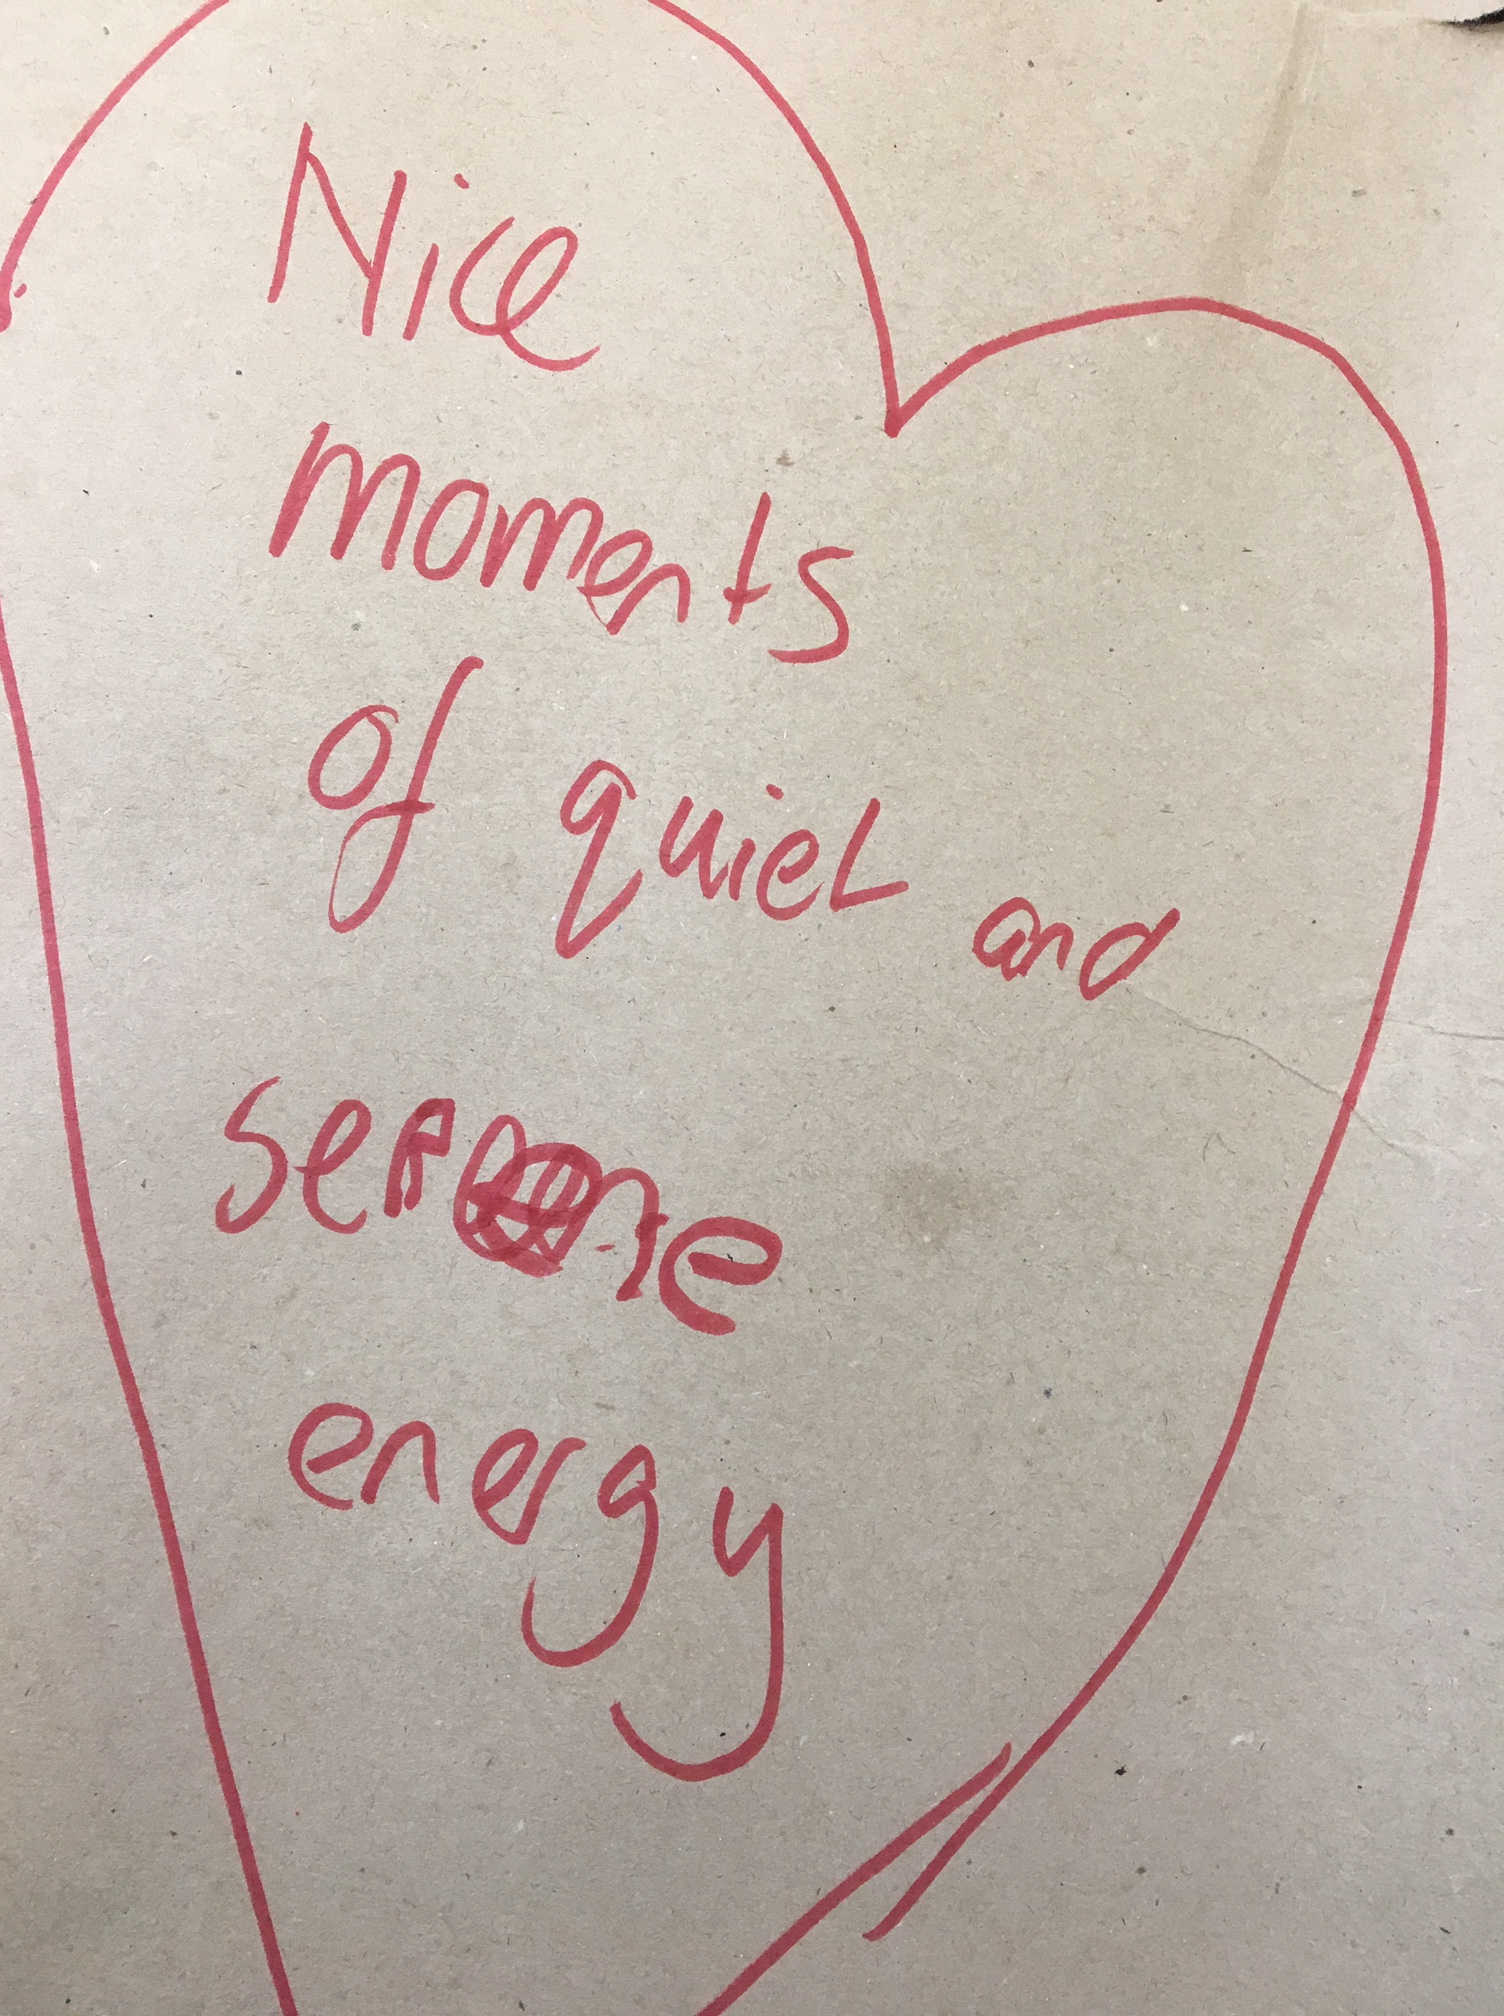 Nice
moments
of quiet and
serene
energy